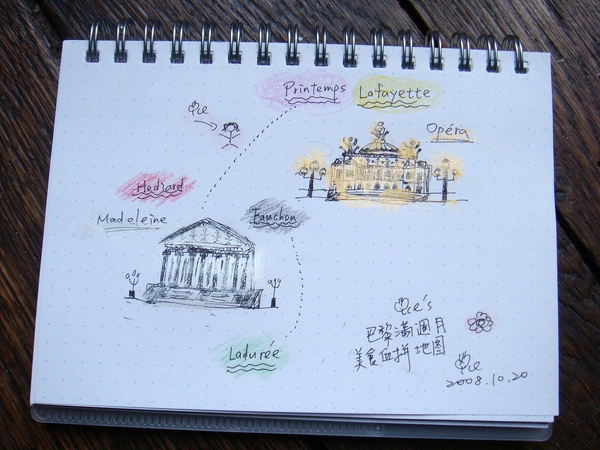 Printemps
Lafayette
Opéra
Hediard
Madeleine
Fauchon
Ladurée
巴黎滿週月
美食血拼地图
2008.10.20